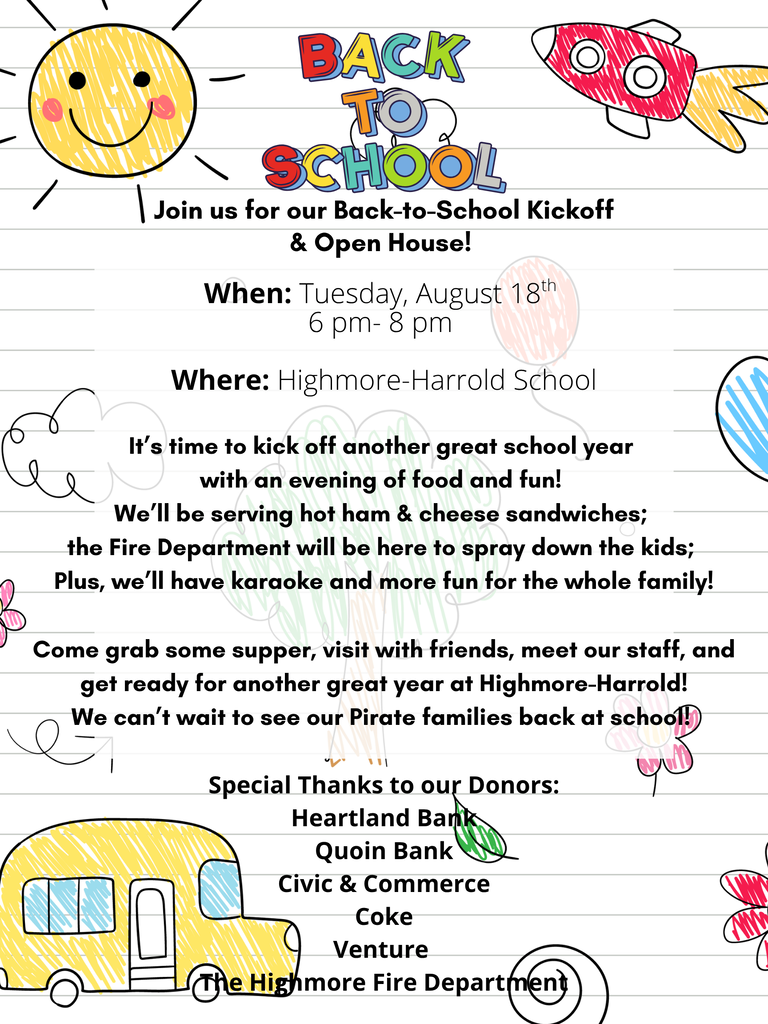 BACK
TO
SCHOOL
Join us for our Back-to-School Kickoff
& Open House!
When: Tuesday, August 18th
6 pm- 8 pm
Where: Highmore-Harrold School
It's time to kick off another great school year
with an evening of food and fun!
We'll be serving hot ham & cheese sandwiches;
the Fire Department will be here to spray down the kids;
Plus, we'll have karaoke and more fun for the whole family!
Come grab some supper, visit with friends, meet our staff, and
get ready for another great year at Highmore-Harrold!
We can't wait to see our Pirate families back at school!
Special Thanks to our Donors:
Heartland Bank
Quoin Bank
Civic & Commerce
Coke
Venture
The Highmore Fire Department